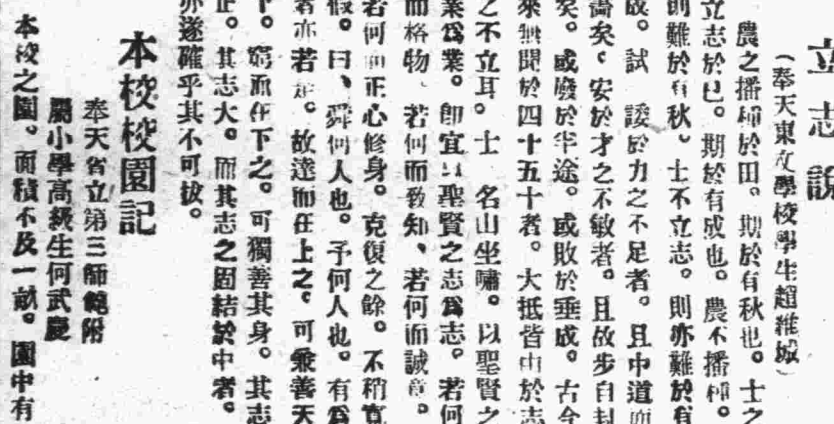 立志說
（奉天東文學校學生趙維城）
農之播種於田。期於有秋也。士之
立志於已。期於有成也。農不播種。
則難於有秋。士不立志。則亦難於有
成。試 諉於力之不足者。且中道而
畵矣、安於才之不敏者。且故步自封
矣。或廢於半途。或敗於垂成。古今
來無聞於四十五十者。大抵皆由於志
之不立耳。士 名山坐嘯。以聖賢之
業爲業。卽宜以聖賢之志爲志。若何
而格物、若何而致知、若何而誠意。
若何而正心修身。克復之餘。不稍寬
假。曰、舜何人也。予何人也。有爲
者亦若是。故達而在上之、可兼善天
下。窮而在下之。可獨善其身。其志
正。其志大。而其志之固結於中者。
亦遂確乎其不可拔。
本校校園記
奉天省立第三師範附
屬小學高級生何武慶
本校之園。面積不及一畝。園中有